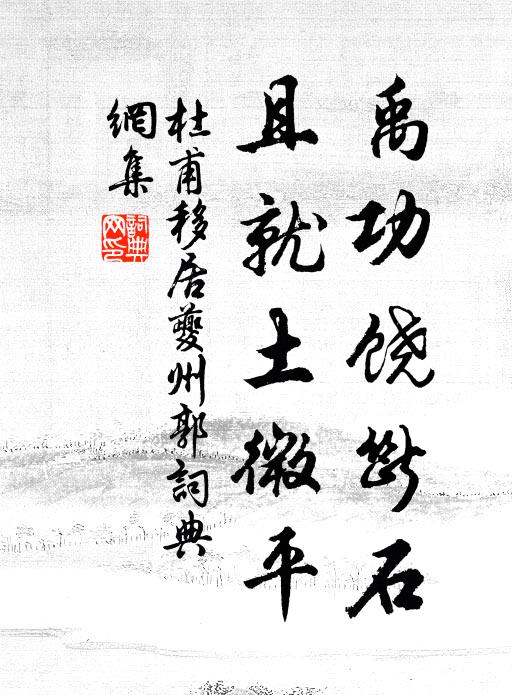 禹功饶斷石
且就土微平
杜甫移居夔州郭詞典
網集
詞典
网印